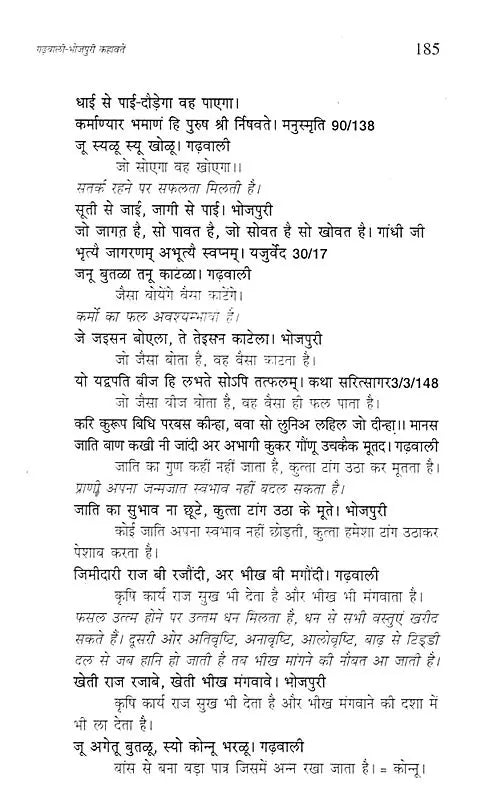 गढ़वाली-भोजपुरी कहावतें
185
धाई से पाई-दौड़ेगा वह पाएगा।
कर्माण्यार भमाणं हि पुरुष श्री र्निषवते। मनुस्मृति 90/138
जू स्यळू स्यू खोळू। गढ़वाली
जो सोएगा वह खोएगा।।
सतर्क रहने पर सफलता मिलती है।
सूती से जाई, जागी से पाई। भोजपुरी
जो जागत है, सो पावत है, जो सोवत है सो खोवत है। गांधी जी
भृत्यै जागरणम् अभूत्यै स्वप्नम्। यजुर्वेद 30/17
जनू बुतळा तनू काटंळा। गढ़वाली
जैसा बोयेंगे वैसा काटेंगे।
कर्मों का फल अवश्यम्भावी है।
जे जइसन बोएला, ते तेइसन काटेला। भोजपुरी
जो जैसा बोता है, वह वैसा काटता है।
यो यद्वपति बीज हि लभते सोऽपि तत्फलम्। कथा सरित्सागर3/3/148
जो जैसा बीज बोता है, वह वैसा ही फल पाता है।
करि कुरूप बिधि परबस कीन्हा, बवा सो लुनिअ लहिल जो दीन्हा।। मानस
जाति बाण कखी नी जांदी अर अभागी कुकर गौंणू उचकैक मूतद। गढ़वाली
जाति का गुण कहीं नहीं जाता है, कुत्ता टांग उठा कर मूतता है।
प्राणी अपना जन्मजात स्वभाव नहीं बदल सकता है।
जाति का सुभाव ना छूटे, कुत्ता टांग उठा के मूते। भोजपुरी
कोई जाति अपना स्वभाव नहीं छोड़ती, कुत्ता हमेशा टांग उठाकर
पेशाब करता है।
जिमीदारी राज बी रजौंदी, अर भीख बी मगौंदी। गढ़वाली
कृषि कार्य राज सुख भी देता है और भीख भी मंगवाता है।
फसल उत्त्म होने पर उत्तम धन मिलता है, धन से सभी वस्तुएं खरीद
सकते हैं। दूसरी ओर अतिवृष्टि, अनावृष्टि, आलोवृष्टि, बाढ़ से टिड्डी
दल से जब हानि हो जाती है तब भीख मांगने की नौयत आ जाती है।
खेती राज रजाबे, खेती भीख मंगवावे। भोजपुरी
कृषि कार्य राज सुख भी देता है और भीख मंगवाने की दशा में
भी ला देता है।
जू अगेतू बुतळू, स्यो कोन्नू भरळू। गढ़वाली
बांस से बना बड़ा पात्र जिसमें अन्न रखा जाता है। = कोन्नू।